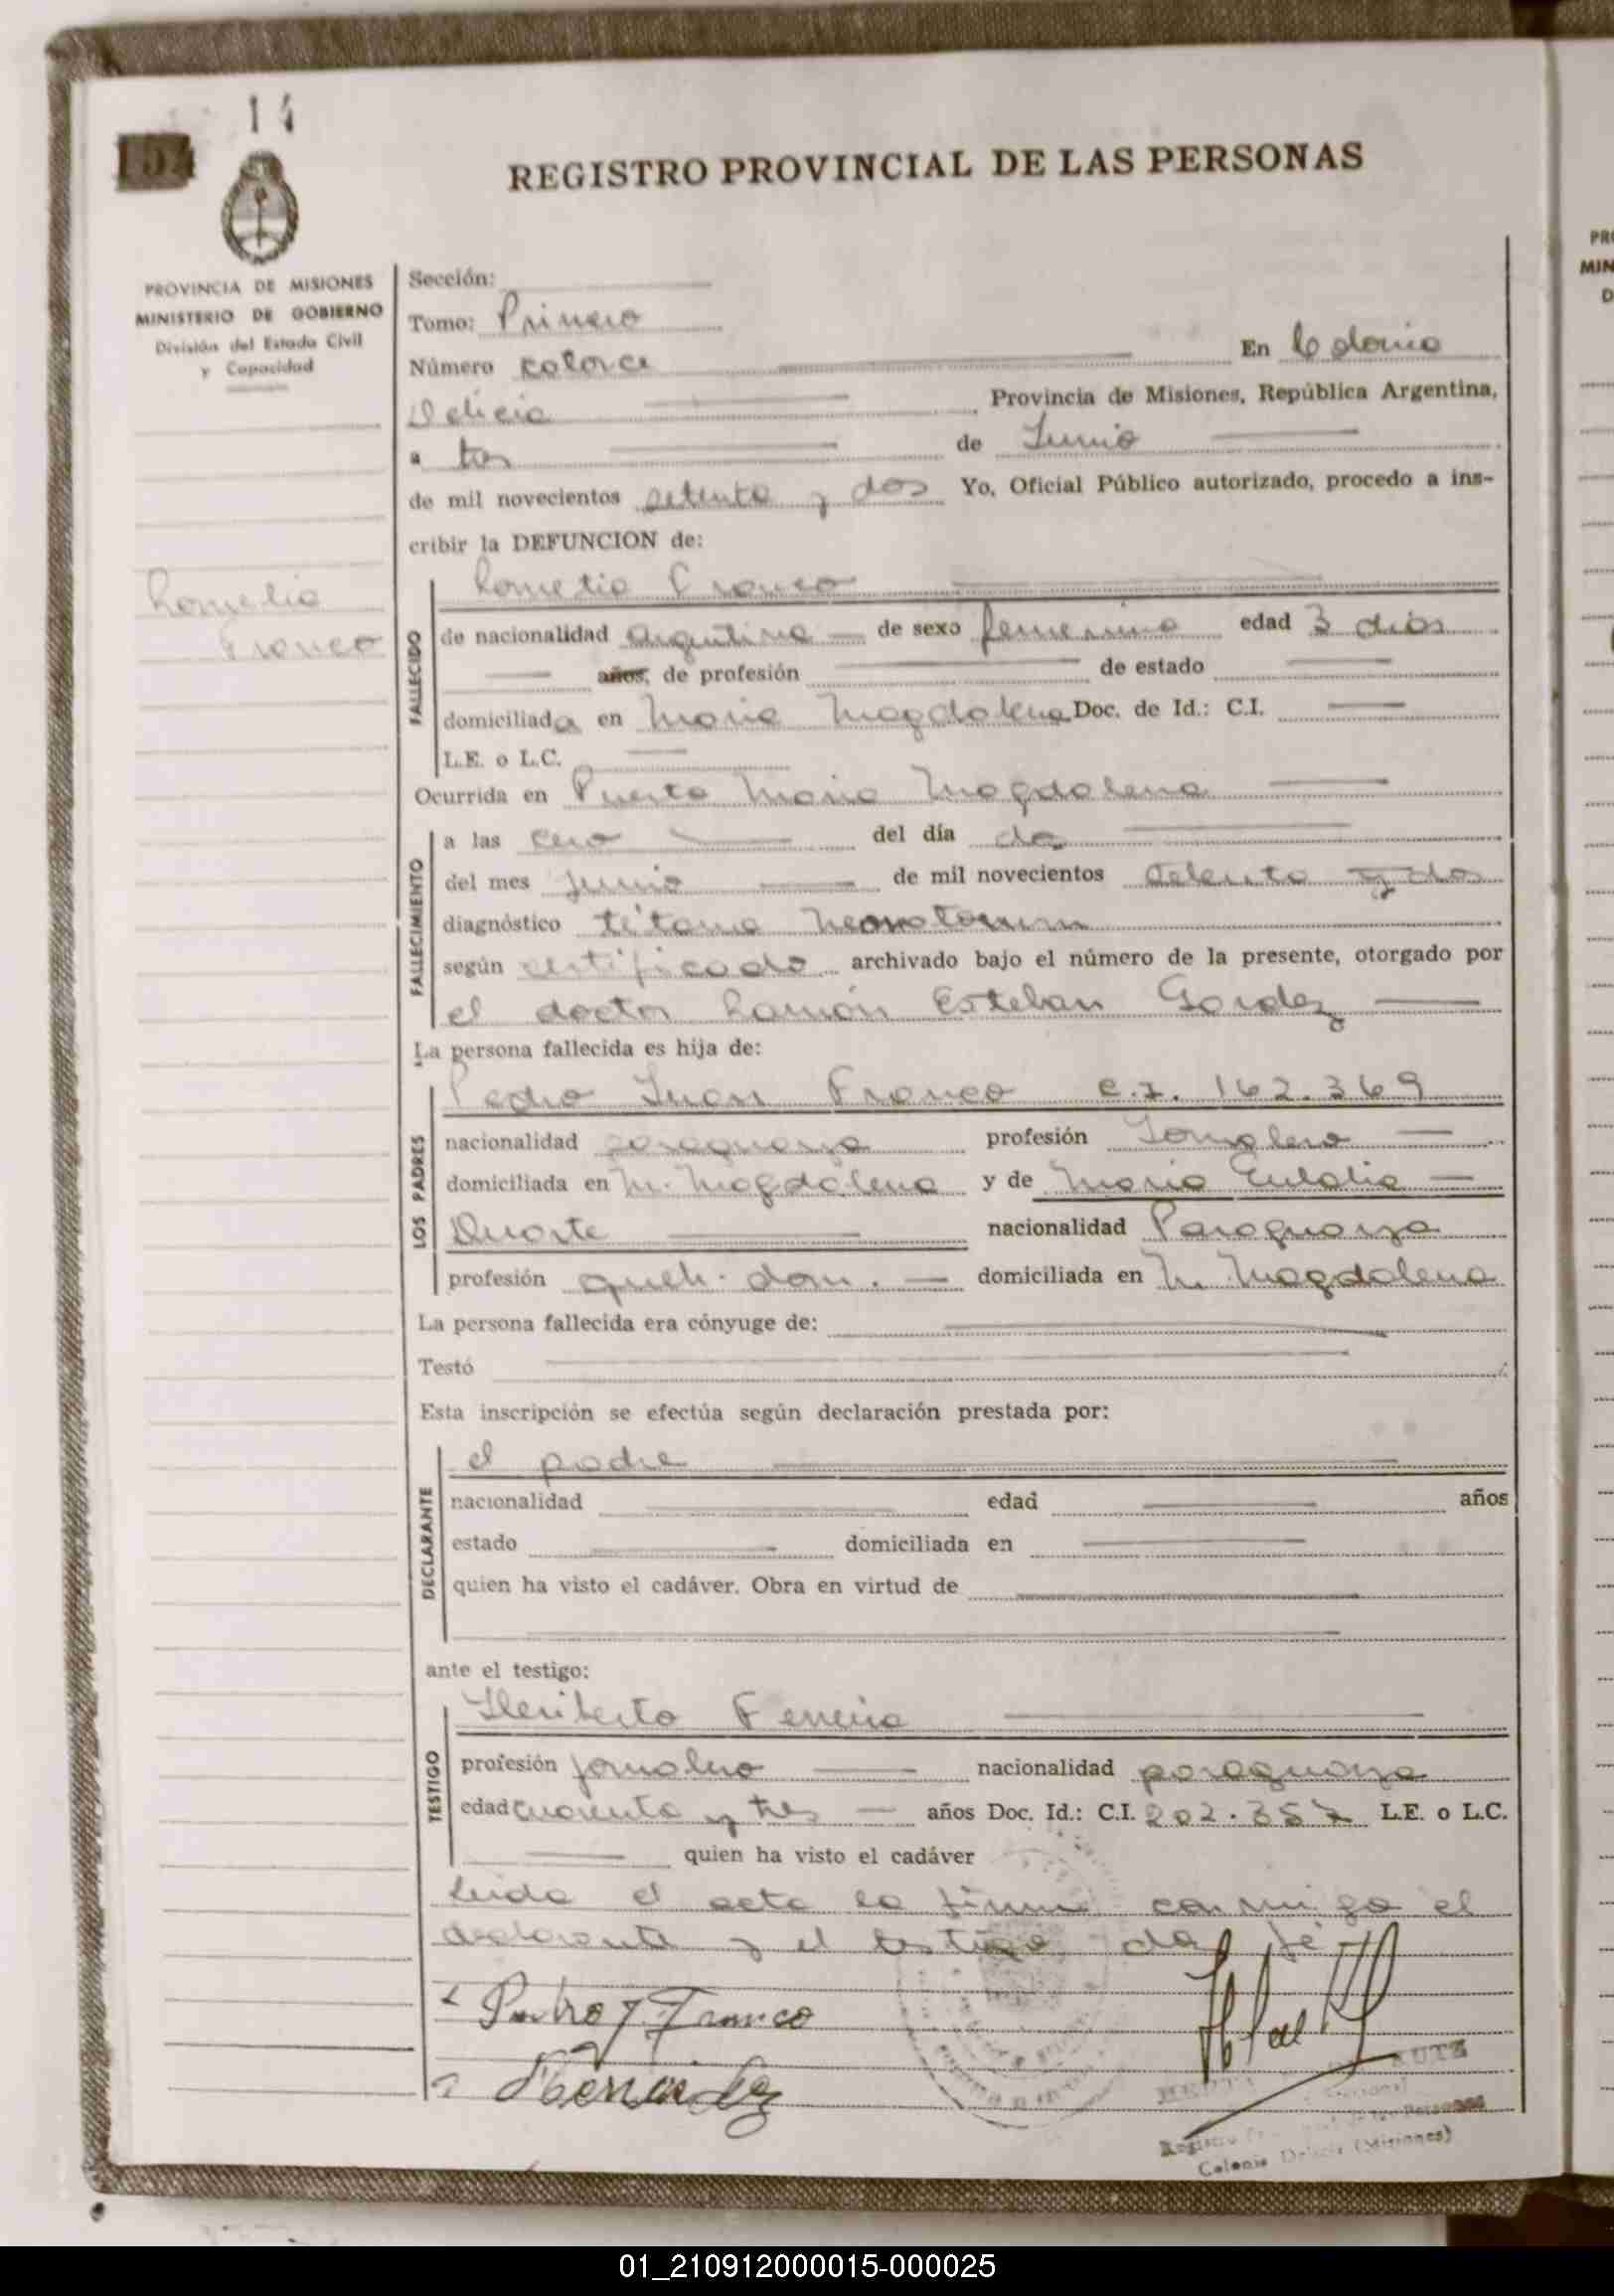 14
154
REGISTRO PROVINCIAL DE LAS PERSONAS
PROVINCIA DE MISIONES
MINISTERIO DE GOBIERNO
División del Estado Civil
y Capacidad
Romelia
Franco
Sección:
Tomo: Primero
Número catorce En Colonia
Delicia Provincia de Misiones, República Argentina,
a tres de Junio
de mil novecientos setenta y dos Yo, Oficial Público autorizado, procedo a ins-
cribir la DEFUNCION de:
Romelia Franco
FALLECIDO
de nacionalidad argentina de sexo femenino edad 3 días
años, de profesión de estado
domiciliada en María Magdalena Doc. de Id.: C.I.
L.E. o L.C.
Ocurrida en Puerto María Magdalena
FALLECIMIENTO
a las cero del día dos
del mes Junio de mil novecientos setenta y dos
diagnóstico tétano neonatorum
según certificado archivado bajo el número de la presente, otorgado por
el doctor Ramón Esteban
La persona fallecida es hija de:
LOS PADRES
Pedro Juan Franco C.I. 162.369
nacionalidad paraguaya profesión Jornalero
domiciliada en M. Magdalena y de María Eulalia
Duarte nacionalidad Paraguaya
profesión queh. dom. domiciliada en M. Magdalena
La persona fallecida era cónyuge de:
Testó
Esta inscripción se efectúa según declaración prestada por:
DECLARANTE
el padre
nacionalidad edad años
estado domiciliada en
quien ha visto el cadáver. Obra en virtud de
ante el testigo:
TESTIGO
Heriberto Ferreira
profesión jornalero nacionalidad paraguaya
edad cuarenta y tres años Doc. Id.: C.I. 202.357 L.E. o L.C.
quien ha visto el cadáver
Leída el acta la firma conmigo el
declarante y el testigo doy fé
Pedro J. Franco
Colonia Delicia (Misiones)
01_210912000015-000025